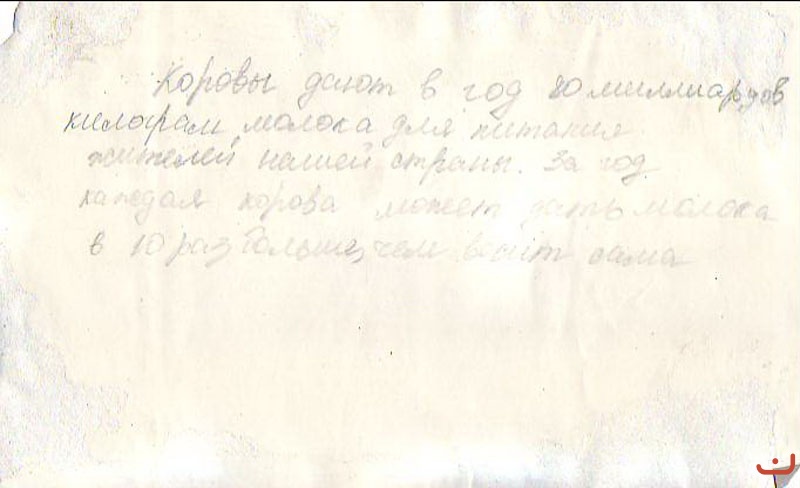 Коровы дают в год 80 миллиардов
килограм молока для питания
жителей нашей страны. За год
каждая корова может дать молока
в 10 раз больше, чем весит сама